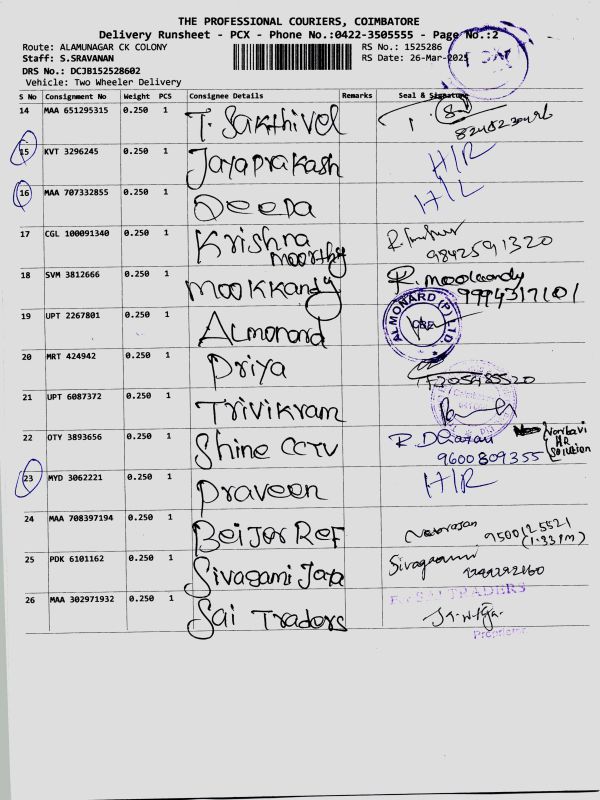 THE PROFESSIONAL COURIERS, COIMBATORE
Delivery Runsheet - PCX - Phone No.:0422-3505555 - Page No.:2
Route: ALAMUNAGAR CK COLONY
RS No.: 1525286
Staff: S.SRAVANAN
RS Date: 26-Mar-2025
DRS No.: DCJB152528602
Vehicle: Two Wheeler Delivery
S No Consignment No Weight PCS Consignee Details Remarks Seal & Signature
14 MAA 651295315 0.250 1 T. Sakthivel
15 KVT 3296245 0.250 1 Jayaprakash H/R
16 MAA 707332855 0.250 1 Deepa H/L
17 CGL 100091340 0.250 1 Krishna moorthy 9842591320
18 SVM 3812666 0.250 1 mookkandy R. mookandy
9994317101
19 UPT 2267801 0.250 1 Almonard ALMONARD (P) LTD.
20 MRT 424942 0.250 1 Priya
21 UPT 6087372 0.250 1 Trivikram
22 OTY 3893656 0.250 1 Shine CCTV
9600809355 HR Solution
23 MYD 3062221 0.250 1 Praveen H/R
24 MAA 708397194 0.250 1 Beijer Ref 9500125521
(1:33PM)
25 PDK 6101162 0.250 1 Sivagami Jaya
26 MAA 302971932 0.250 1 Sai Traders For SAI TRADERS
Proprietor